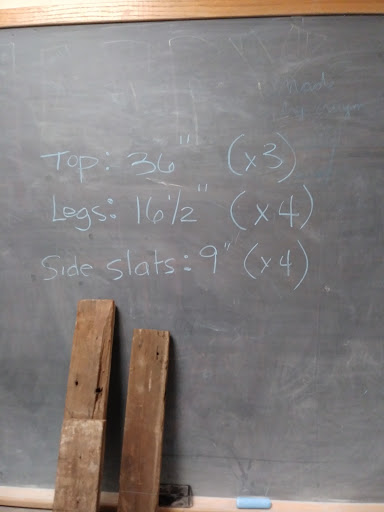 Top: 36" (x3)
Legs: 16 1/2" (x4)
Side Slats: 9" (x4)